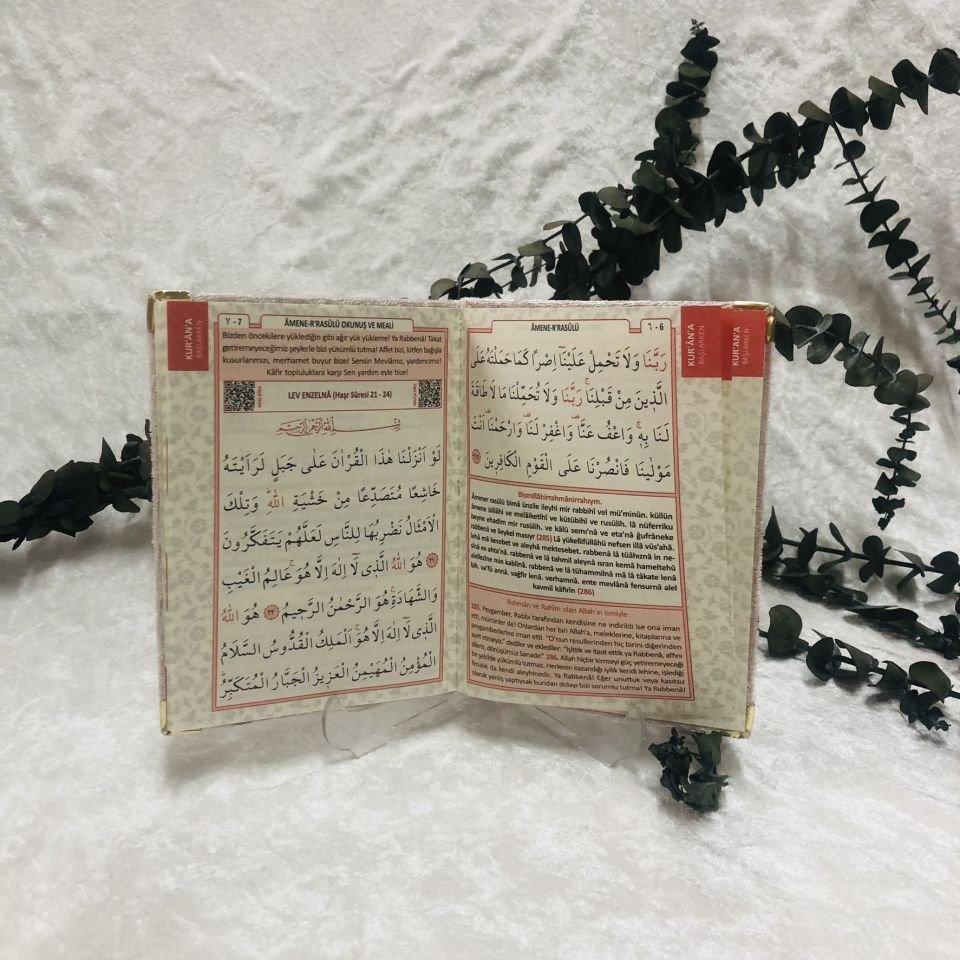 KUR'ÂN'A
BAŞLARKEN
KUR'ÂN'A
BAŞLARKEN
٦ - 6
ÂMENE-R'RASÛLÜ
رَبَّنَا وَلَا تَحْمِلْ عَلَيْنَٓا اِصْرًا كَمَا حَمَلْتَهُ عَلَى
الَّذ۪ينَ مِنْ قَبْلِنَاۚ رَبَّنَا وَلَا تُحَمِّلْنَا مَا لَا طَاقَةَ
لَنَا بِه۪ۚ وَاعْفُ عَنَّا۠ وَاغْفِرْ لَنَا۠ وَارْحَمْنَا۠ اَنْتَ
مَوْلٰينَا فَانْصُرْنَا عَلَى الْقَوْمِ الْكَافِر۪ينَ
Bismillâhirrahmânirrahıym.
Âmener rasûlü bimâ ünzile ileyhi mir rabbihî vel mü'minûn. küllün
âmene billâhi ve melâiketihî ve kütübihî ve rusülih. lâ nüferriku
beyne ehadim mir rusülih. ve kâlû semı'nâ ve eta'nâ ğufrâneke
rabbenâ ve ileykel masıyr (285) Lâ yükellifüllâhü nefsen illâ vüs'ahâ.
lehâ mâ kesebet ve aleyhâ mektesebet. rabbenâ lâ tüâhıznâ in ne-
sînâ ev ahta'nâ. rabbenâ ve lâ tahmil aleynâ ısran kemâ hameltehû
alellezîne min kablinâ. rabbenâ ve lâ tühammilnâ mâ lâ tâkate lenâ
bih. va'fü annâ. vağfir lenâ. verhamnâ. ente mevlânâ fensurnâ alel
kavmil kâfirîn (286)
Rahmân ve Rahîm olan Allah'ın ismiyle
285. Peygamber, Rabbi tarafından kendisine ne indirildi ise ona iman
etti, müminler de! Onlardan her biri Allah'a, meleklerine, kitaplarına ve
peygamberlerine iman etti. "O'nun resullerinden hiç birini diğerinden
ayırt etmeyiz." dediler ve eklediler: "İşittik ve itaat ettik ya Rabbenâ, affını
dileriz, dönüşümüz Sanadır." 286. Allah hiçbir kimseyi güç yetiremeyeceği
bir şekilde yükümlü tutmaz. Herkesin kazandığı iyilik kendi lehine, işlediği
fenalık da kendi aleyhinedir. Ya Rabbenâ! Eğer unuttuk veya kasıtsız
olarak yanlış yaptıysak bundan dolayı bizi sorumlu tutma! Ya Rabbenâ!
KUR'ÂN'A
BAŞLARKEN
٧ - 7
ÂMENE-R'RASÛLÜ OKUNUŞ VE MEALİ
Bizden öncekilere yüklediğin gibi ağır yük yükleme! Ya Rabbenâ! Takat
getiremeyeceğimiz şeylerle bizi yükümlü tutma! Affet bizi, lütfen bağışla
kusurlarımızı, merhamet buyur bize! Sensin Mevlâmız, yardımcımız!
Kâfir topluluklara karşı Sen yardım eyle bize!
LEV ENZELNÂ (Haşr Sûresi 21 - 24)
بِسْمِ اللّٰهِ الرَّحْمٰنِ الرَّح۪يمِ
لَوْ اَنْزَلْنَا هٰذَا الْقُرْاٰنَ عَلٰى جَبَلٍ لَرَاَيْتَهُ
خَاشِعًا مُتَصَدِّعًا مِنْ خَشْيَةِ اللّٰهِۜ وَتِلْكَ
الْاَمْثَالُ نَضْرِبُهَا لِلنَّاسِ لَعَلَّهُمْ يَتَفَكَّرُونَ
﴿٢١﴾ هُوَ اللّٰهُ الَّذ۪ي لَٓا اِلٰهَ اِلَّا هُوَۚ عَالِمُ الْغَيْبِ
وَالشَّهَادَةِۚ هُوَ الرَّحْمٰنُ الرَّح۪يمُ ﴿٢٢﴾ هُوَ اللّٰهُ
الَّذ۪ي لَٓا اِلٰهَ اِلَّا هُوَۚ اَلْمَلِكُ الْقُدُّوسُ السَّلَامُ
الْمُؤْمِنُ الْمُهَيْمِنُ الْعَز۪يزُ الْجَبَّارُ الْمُتَكَبِّرُۜ